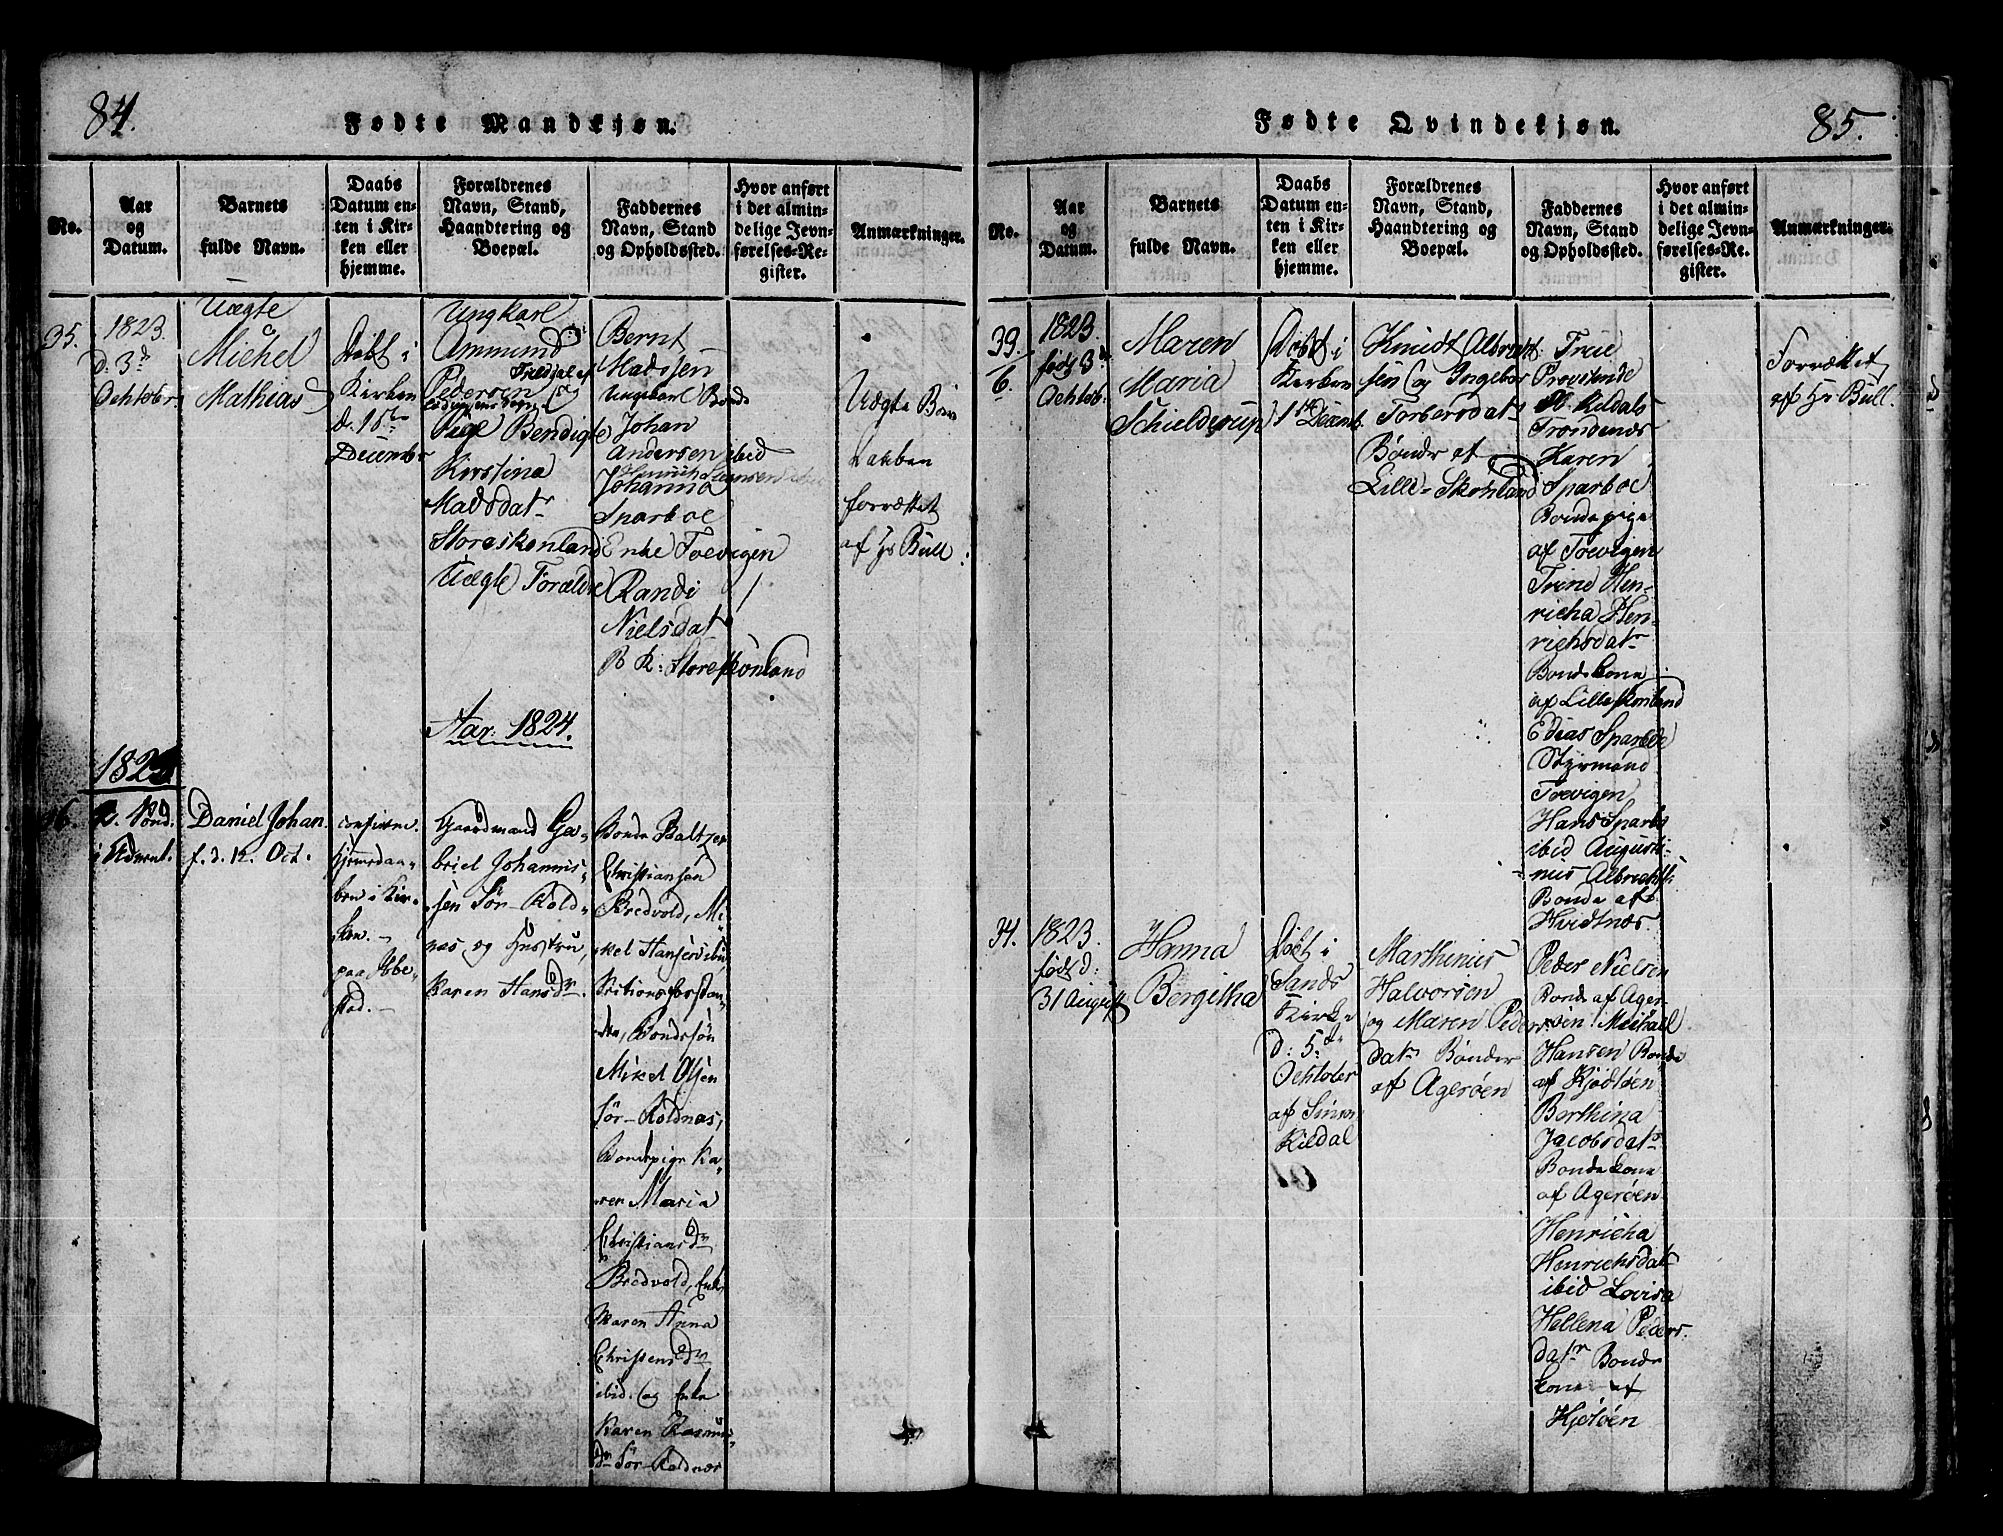 84.
Fødte Mandkjøn.
No.
Aar
og
Datum.
Barnets
fulde Navn.
Daabs
Datum en-
ten i Kir-
ken eller
hjemme.
Forældrenes
Navn, Stand,
Haandtering og
Boepæl.
Faddernes
Navn, Stand
og Opholdssted.
Hvor anført
i det almin-
delige Jevn-
førelses-Re-
gister.
Anmærkninger.
35.
1823.
d. 3d
Ochtobr
Uægte
Michel
Mathias
Døbt i
Kirken
d. 15de
Decembr
Ungkarl
Ammund
Pedersen
Pige Bendigte
Kirstina
Madsdatr
Storeskonland
Uægte Forældre
Bernt
Madssen
Ungekarl Bonde
Johan
Andersen ibid
Johanna
Sparboe
Enke Toevigen
Randi
Nielsdatr
B K: Storeskonland
Uægte Barn
Daaben
forrættet
af Hr Bull
Aar: 1824.
1823
36.
2. Sønd.
i Advent.
Daniel Johan.
f. 3. K. Oct.
confirm.
hjemmedaa-
ben i Kir-
ken. –
paa Ibbe-
stad. –
Gaardmand Ga-
briel Johannis-
sen Sør-Rold-
næs, og Hustru,
Karen Hansdr.
Bonde Baltzer
Christiansen
Bredvold, Mi-
kel Hansen ibid,
Bondesøn
Mikel Olsen
Sør-Roldnæs,
Bondepige Ka-
ren Maria
Christiansdr
Bredvold, Enke
Karen Anna
Christensdr
ibid. og Enke
Karen Rasmus-
dr Sør-Roldnæs
85.
Fødte Qvindekjøn.
No.
Aar
og
Datum.
Barnets
fulde Navn.
Daabs
Datum en-
ten i Kir-
ken eller
hjemme.
Forældrenes
Navn, Stand,
Haandtering og
Boepæl.
Faddernes
Navn, Stand
og Opholdssted.
Hvor anført
i det almin-
delige Jevn-
førelses-Re-
gister.
Anmærkninger.
33.
6.
1823.
født 3d
Ochtob.
Maren
Maria
Schielderup
Døbt i
Kirken
1ste Decemb.
Knudt Albrigt-
sen og Ingebor
Torbersdatr
Bønder af
Lille-Skonland
Frue
Provstinde
Kildal
Trondenæs
Karen
Sparboe
Bonde pige
af Toevigen
Trine Hen-
richa Hen-
richsdatr
Bondekone
af Lilleskonland
Edias Sparboe
Styrmand
Toevigen
Hans Sparbo
ibid Augusti-
nus Albrechtsi
Bonde af
Hvidtnæs.
Forrættet
af Hr Bull.
34.
1823.
født d:
31 August
Hanna
Bergitha
Døbt i
Sands
Kirke
d: 5. de
Ochtober
af Simon
Kildal
Marthinus
Halvorsen
og Maren Peders-
datr Bønder
af Agerøen
Peder Nielsen
Bonde af Ager-
øen Michall
Hansen Bonde
af Kjødtøen
Berthina
Jacobsdatr
Bondekone
af Agerøen
Henricha
Henrichsdatr
ibid Lovisa
Hellena Peders.
datr Bonde
kone af
Kjøtøen